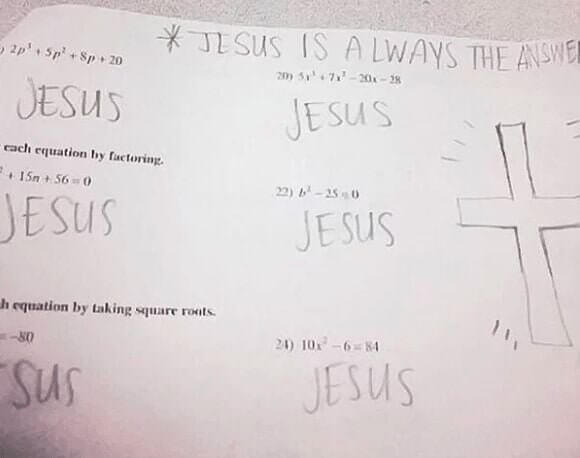 * JESUS IS ALWAYS THE ANSWE
) 2p³ + 5p² + 8p + 20
20) 5x³ + 7x² − 20x − 28
JESUS
JESUS
each equation by factoring.
² + 15n + 56 = 0
22) b² − 25 = 0
JESUS
JESUS
h equation by taking square roots.
= −80
24) 10x² − 6 = 84
SUS
JESUS